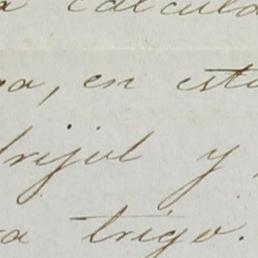 a calcula
a, en esta
frijol y
a trigo.